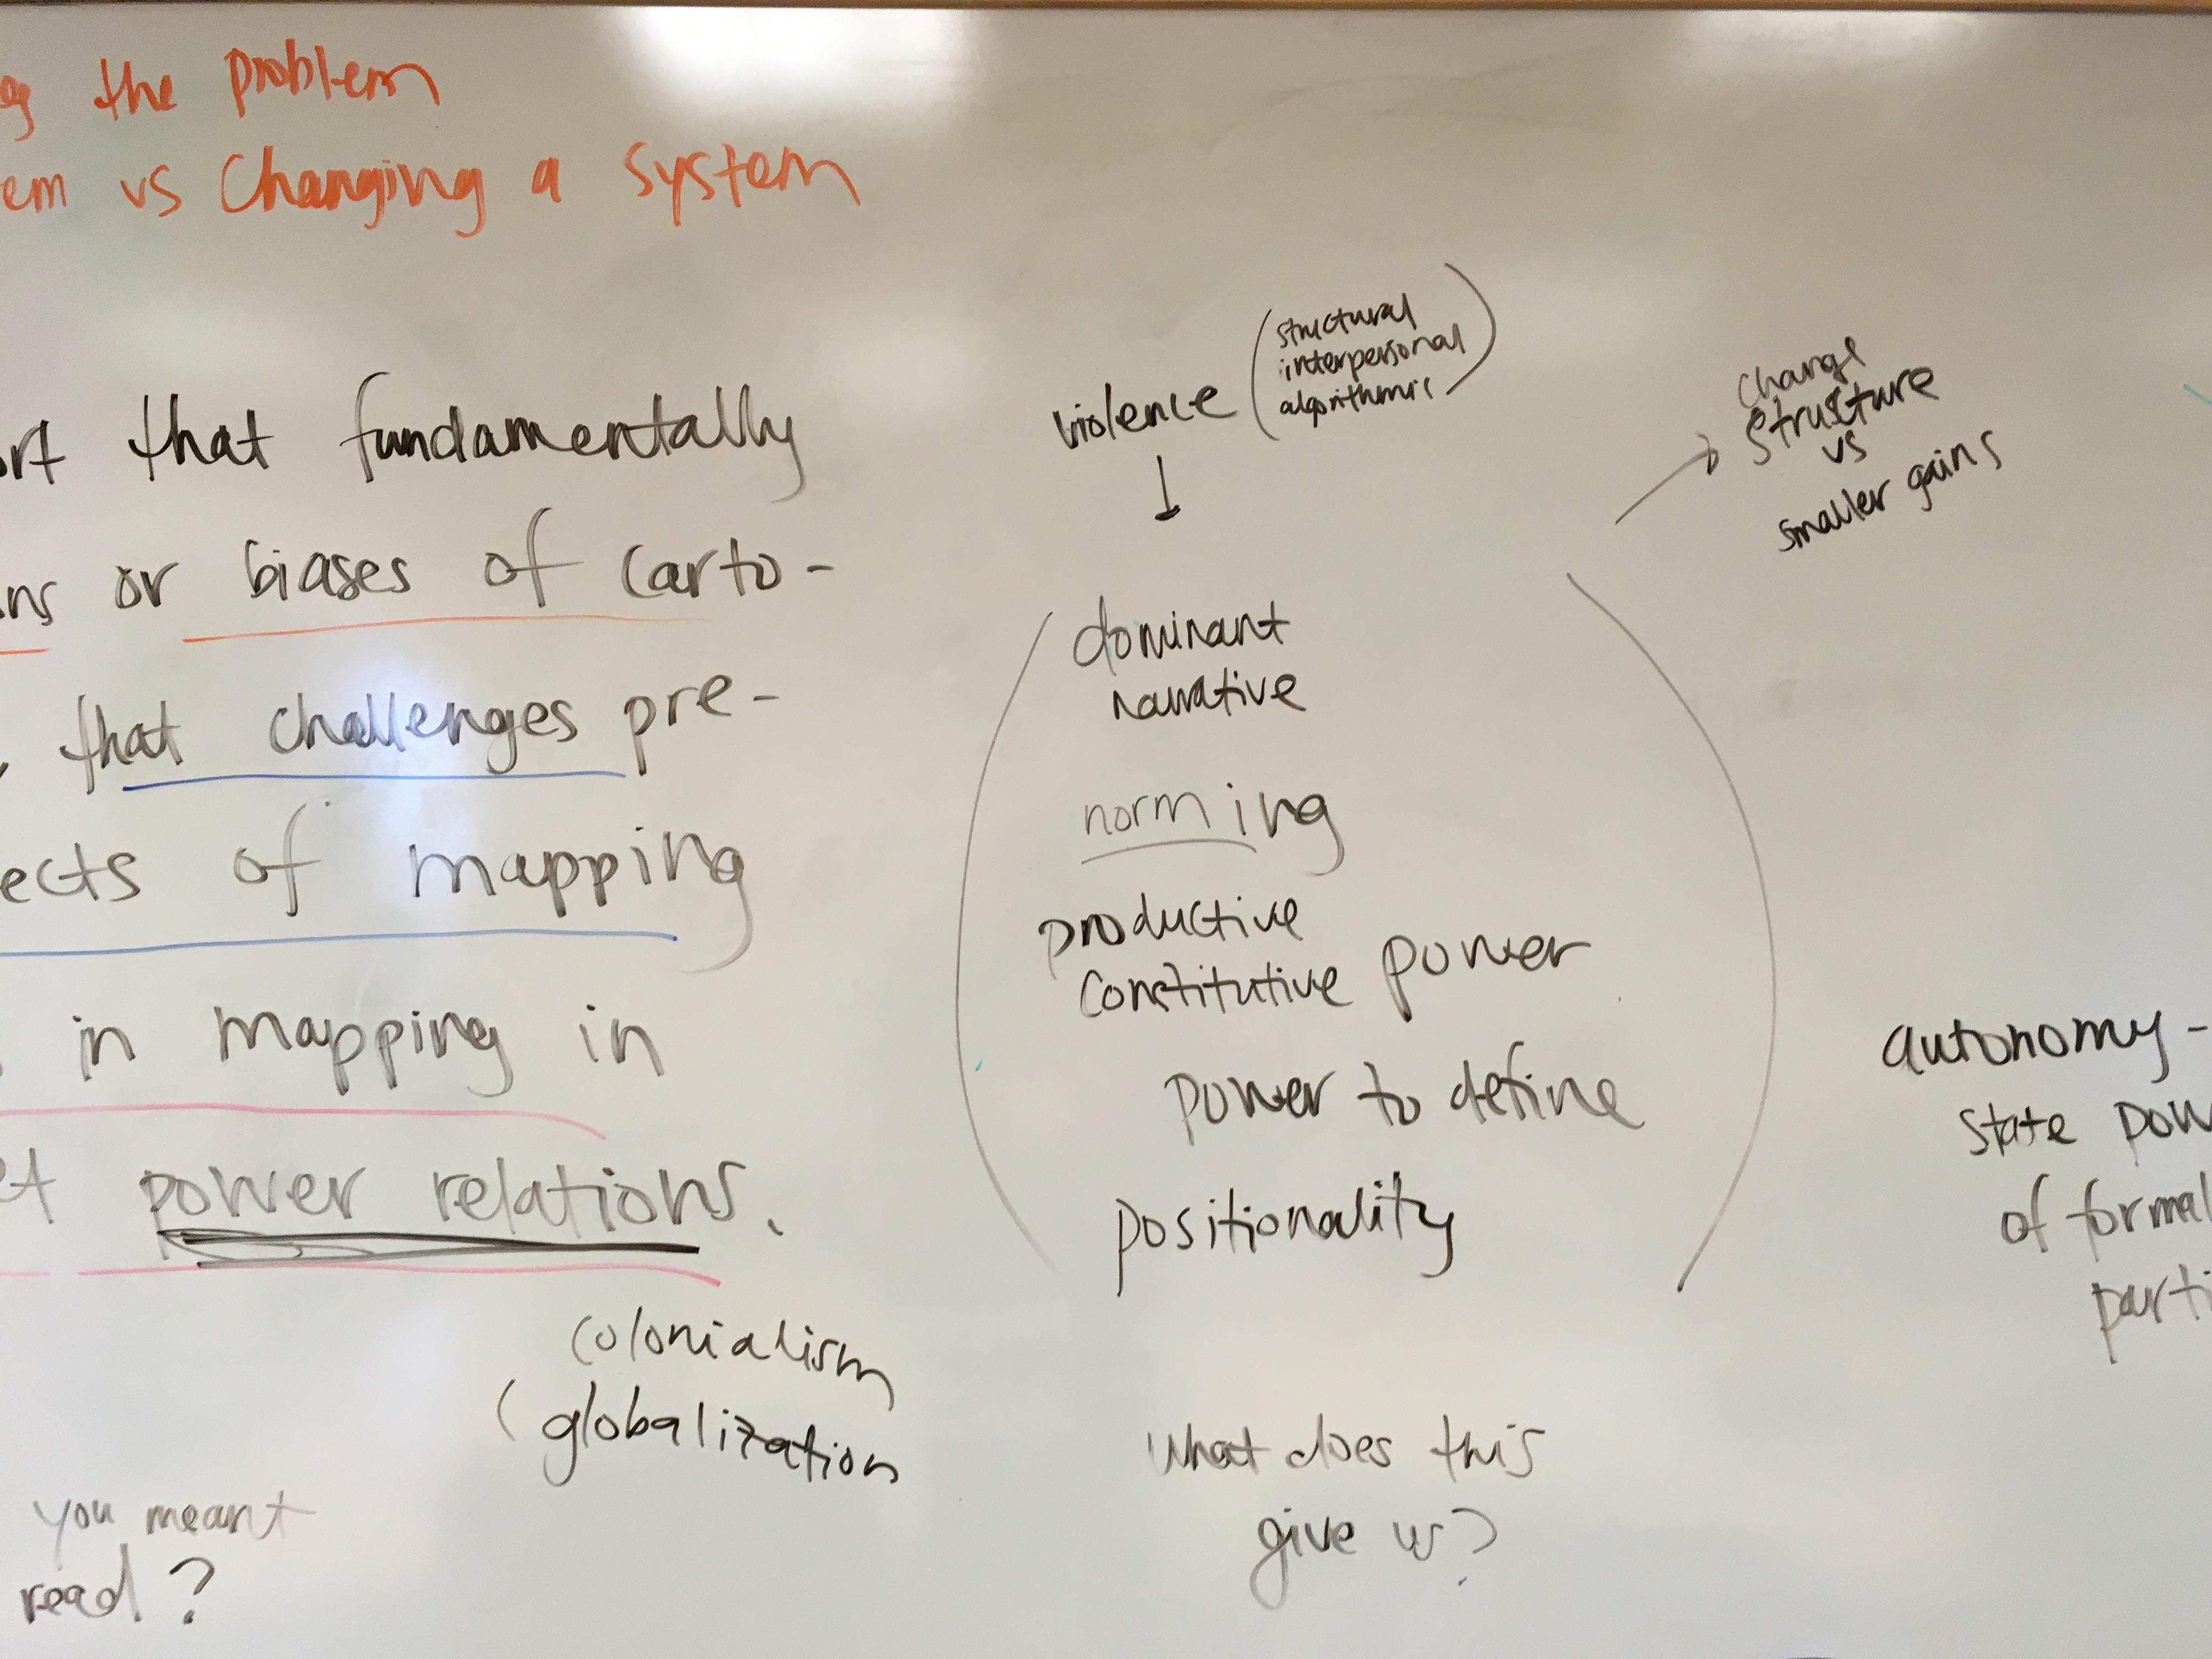 the problem
em vs Changing a system
that fundamentally
ns or biases of Carto-
that challenges pre-
ects of mapping
in mapping in
power relations.
colonialism
(globalization
you meant
read?
violence (structural
interpersonal
algorithmic)
(dominant
narrative
norming
productive
Constitutive power
power to define
positionality)
What does this
give us?
→ change
structure
vs
smaller gains
autonomy-
state pow
of formal
parti